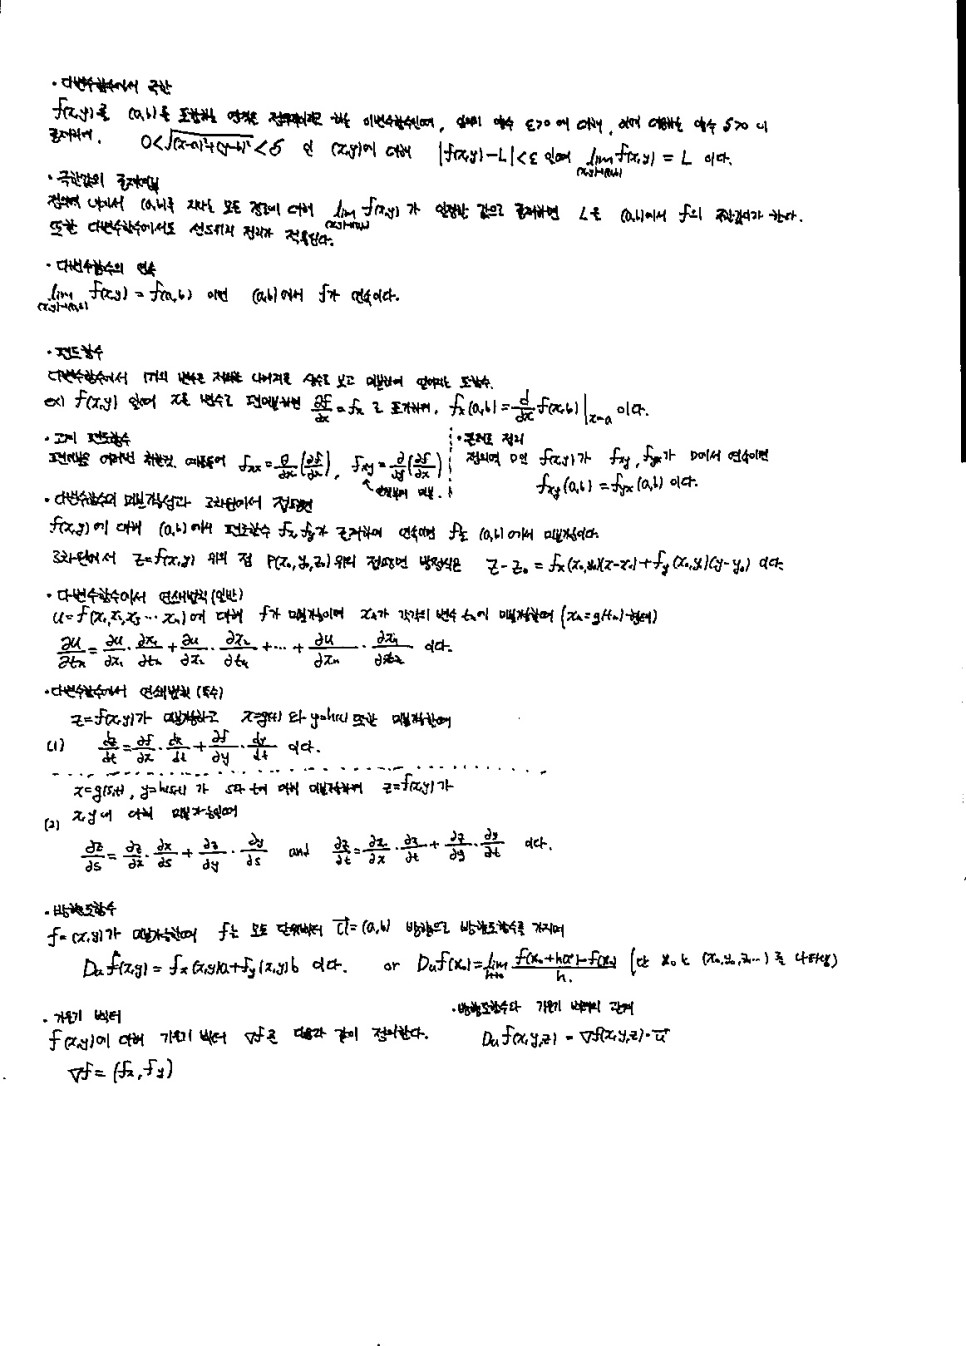 · 다변수함수에서 극한
f(x,y)를 (a,b)를 포함하는 영역은 정의역이라고 하는 이변수함수인데, 임의의 양수 ε>0 에 대해, 이에 대응하는 양수 δ>0 이
존재하여, 0<√(x-a)²+(y-b)²<δ 인 (x,y)에 대해 |f(x,y)-L|<ε 인데 lim (x,y)→(a,b) f(x,y) = L 이다.
· 극한값의 존재여부
정의역 내에서 (a,b)를 지나는 모든 경로에 대해 lim (x,y)→(a,b) f(x,y) 가 일정한 값으로 존재하면 L은 (a,b)에서 f의 극한값이라 한다.
또한 다변수함수에서도 샌드위치 정리가 적용된다.
· 다변수함수의 연속
lim (x,y)→(a,b) f(x,y) = f(a,b) 이면 (a,b)에서 f가 연속이다.
· 편도함수
다변수함수에서 1개의 변수를 제외한 나머지를 상수로 보고 미분하여 얻어지는 도함수.
ex) f(x,y) 인데 x를 변수로 편미분하면 ∂f/∂x = fx 로 표기하며, fx(a,b) = d/dx f(x,b)|x=a 이다.
· 고계 편도함수
편미분을 여러번 취한것. 예를들어 fxx = ∂/∂x(∂f/∂x), fxy = ∂/∂y(∂f/∂x)
↖ 안쪽부터 미분.
· 클레로 정리
정의역 D인 f(x,y)가 fxy, fyx가 D에서 연속이면
fxy(a,b) = fyx(a,b) 이다.
· 다변수함수의 미분가능성과 3차원에서 접평면
f(x,y)에 대해 (a,b)에서 편도함수 fx, fy가 존재하며 연속이면 f는 (a,b)에서 미분가능이다.
3차원에서 z=f(x,y) 위의 점 P(x₀,y₀,z₀) 위의 접평면 방정식은 z-z₀ = fx(x₀,y₀)(x-x₀)+fy(x₀,y₀)(y-y₀) 이다.
· 다변수함수에서 연쇄법칙 (일반)
u=f(x₁,x₂,x₃…xₙ)에 대해 f가 미분가능이며 xₙ가 각각의 변수 tₙ에 미분가능하며 (xₙ=g(tₙ)형태)
∂u/∂tₙ = ∂u/∂x₁·∂x₁/∂tₙ + ∂u/∂x₂·∂x₂/∂tₙ + … + ∂u/∂xₙ·∂xₙ/∂tₙ 이다.
· 다변수함수에서 연쇄법칙 (특수)
z=f(x,y)가 미분가능하고 x=g(t) 와 y=h(t) 또한 미분가능한데
(1) dz/dt = ∂f/∂x·dx/dt + ∂f/∂y·dy/dt 이다.
x=g(s,t), y=h(s,t) 가 s와 t에 대해 미분가능하며 z=f(x,y)가
(2) x,y에 대해 미분가능인데
∂z/∂s = ∂z/∂x·∂x/∂s + ∂z/∂y·∂y/∂s and ∂z/∂t = ∂z/∂x·∂x/∂t + ∂z/∂y·∂y/∂t 이다.
· 방향도함수
f=(x,y)가 미분가능한데 f는 모든 단위벡터 u⃗=(a,b) 방향으로 방향도함수를 가지며
Duf(x,y) = fx(x,y)a+fy(x,y)b 이다. or Duf(x₀) = lim h→0 f(x₀+hu⃗)-f(x₀)/h. (단 x₀는 (x₀,y₀,z₀…)를 나타냄)
· 기울기 벡터
f(x,y)에 대해 기울기 벡터 ∇f은 다음과 같이 정의한다.
∇f = (fx, fy)
· 방향도함수와 기울기 벡터의 관계
Duf(x,y,z) = ∇f(x,y,z)·u⃗